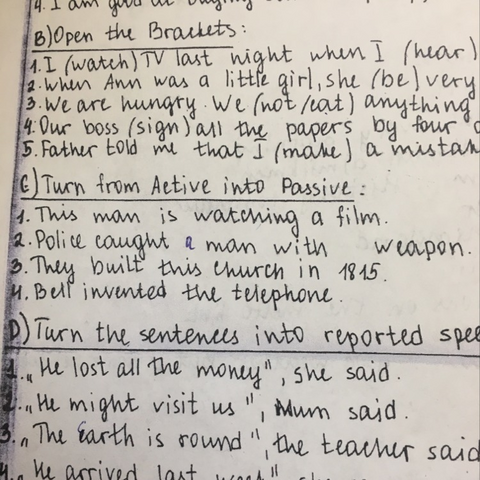 4. I am good at buying
B) Open the Brackets:
1. I (watch) TV last night when I (hear)
2. When Ann was a little girl, she (be) very
3. We are hungry. We (not/eat) anything
4. Our boss (sign) all the papers by four
5. Father told me that I (make) a mistak
C) Turn from Active into Passive:
1. This man is watching a film.
2. Police caught a man with weapon.
3. They built this church in 1815.
4. Bell invented the telephone.
D) Turn the sentences into reported spee
1. „He lost all the money", she said.
2. „He might visit us", Mum said.
3. „The Earth is round", the teacher said
4. „He arrived last week" she